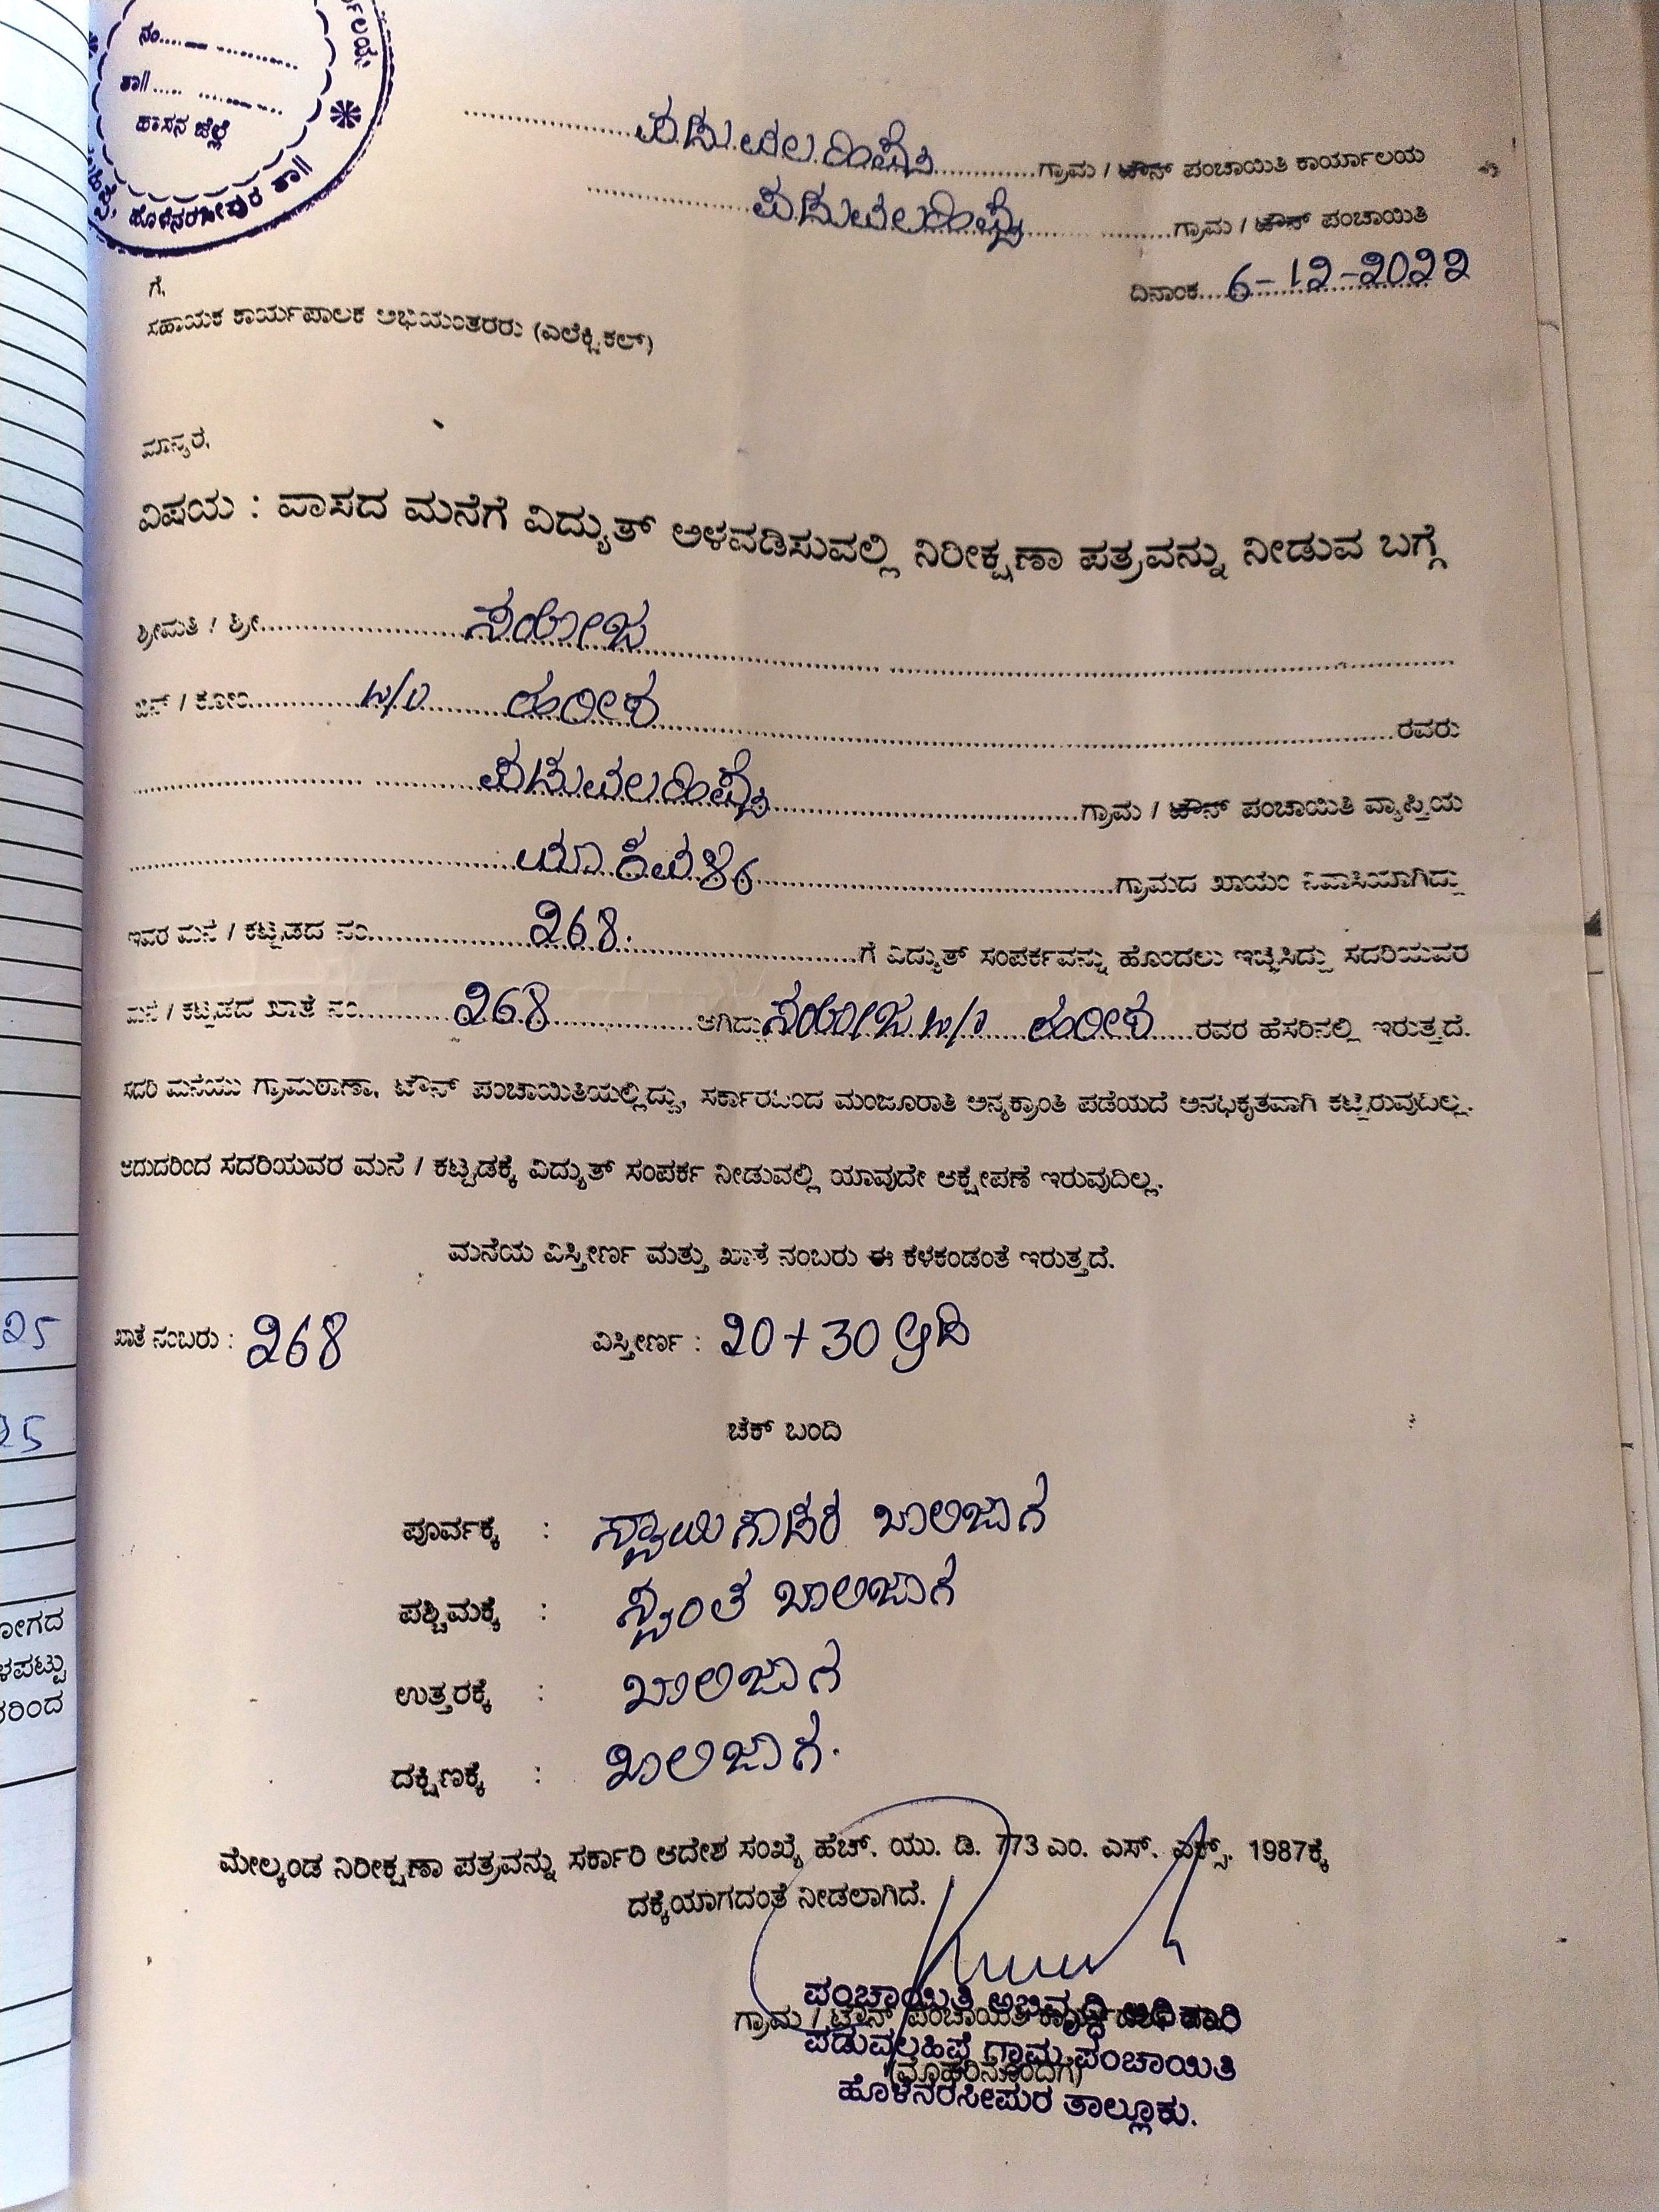 ನಂ.................
ತಾ||.................
ಹಾಸನ ಜಿಲ್ಲೆ
ಹೊಳೆನರಸೀಪುರ ತಾ||
ಪಡುವಲಹಿಪ್ಪೆ ಗ್ರಾಮ / ಟೌನ್ ಪಂಚಾಯಿತಿ ಕಾರ್ಯಾಲಯ
ಪಡುವಲಹಿಪ್ಪೆ ಗ್ರಾಮ / ಟೌನ್ ಪಂಚಾಯಿತಿ
ದಿನಾಂಕ 6-12-2022
ಗೆ,
ಸಹಾಯಕ ಕಾರ್ಯಪಾಲಕ ಅಭಿಯಂತರರು (ಎಲೆಕ್ಟ್ರಿಕಲ್)
ಮಾನ್ಯರೆ,
ವಿಷಯ : ವಾಸದ ಮನೆಗೆ ವಿದ್ಯುತ್ ಅಳವಡಿಸುವಲ್ಲಿ ನಿರೀಕ್ಷಣಾ ಪತ್ರವನ್ನು ನೀಡುವ ಬಗ್ಗೆ
ಶ್ರೀಮತಿ / ಶ್ರೀ ಸರೋಜ
ಬಿನ್ / ಕೋಂ w/o ಹರೀಶ ರವರು
ಪಡುವಲಹಿಪ್ಪೆ ಗ್ರಾಮ / ಟೌನ್ ಪಂಚಾಯಿತಿ ವ್ಯಾಪ್ತಿಯ
ಗ್ರಾಮದ ಖಾಯಂ ನಿವಾಸಿಯಾಗಿದ್ದು
ಇವರ ಮನೆ / ಕಟ್ಟಡದ ನಂ 268. ಗೆ ವಿದ್ಯುತ್ ಸಂಪರ್ಕವನ್ನು ಹೊಂದಲು ಇಚ್ಛಿಸಿದ್ದು ಸದರಿಯವರ
ಮನೆ / ಕಟ್ಟಡದ ಖಾತೆ ನಂ 268 ಆಗಿದ್ದು ಸರೋಜ w/o ಹರೀಶ ರವರ ಹೆಸರಿನಲ್ಲಿ ಇರುತ್ತದೆ.
ಸದರಿ ಮನೆಯು ಗ್ರಾಮಠಾಣಾ, ಟೌನ್ ಪಂಚಾಯಿತಿಯಲ್ಲಿದ್ದು, ಸರ್ಕಾರದಿಂದ ಮಂಜೂರಾತಿ ಅನ್ಯಕ್ರಾಂತಿ ಪಡೆಯದೆ ಅನಧಿಕೃತವಾಗಿ ಕಟ್ಟಿರುವುದಿಲ್ಲ.
ಆದುದರಿಂದ ಸದರಿಯವರ ಮನೆ / ಕಟ್ಟಡಕ್ಕೆ ವಿದ್ಯುತ್ ಸಂಪರ್ಕ ನೀಡುವಲ್ಲಿ ಯಾವುದೇ ಆಕ್ಷೇಪಣೆ ಇರುವುದಿಲ್ಲ.
ಮನೆಯ ವಿಸ್ತೀರ್ಣ ಮತ್ತು ಖಾತೆ ನಂಬರು ಈ ಕೆಳಕಂಡಂತೆ ಇರುತ್ತದೆ.
ಖಾತೆ ನಂಬರು : 268 ವಿಸ್ತೀರ್ಣ : 20+30 ಅಡಿ
ಚೆಕ್ ಬಂದಿ
ಪೂರ್ವಕ್ಕೆ : ಖಾಲಿಜಾಗ
ಪಶ್ಚಿಮಕ್ಕೆ : ಸ್ವಂತ ಖಾಲಿಜಾಗ
ಉತ್ತರಕ್ಕೆ : ಖಾಲಿಜಾಗ
ದಕ್ಷಿಣಕ್ಕೆ : ಖಾಲಿಜಾಗ.
ಮೇಲ್ಕಂಡ ನಿರೀಕ್ಷಣಾ ಪತ್ರವನ್ನು ಸರ್ಕಾರಿ ಆದೇಶ ಸಂಖ್ಯೆ ಹೆಚ್. ಯು. ಡಿ. 773 ಎಂ. ಎಸ್. ಎಕ್ಸ್. 1987ಕ್ಕೆ
ದಕ್ಕೆಯಾಗದಂತೆ ನೀಡಲಾಗಿದೆ.
ಪಂಚಾಯಿತಿ ಅಭಿವೃದ್ಧಿ ಅಧಿಕಾರಿ
ಗ್ರಾಮ / ಟೌನ್ ಪಂಚಾಯಿತಿ
ಪಡುವಲಹಿಪ್ಪೆ ಗ್ರಾಮ ಪಂಚಾಯಿತಿ
(ಮೊಹರಿನೊಂದಿಗೆ)
ಹೊಳೆನರಸೀಪುರ ತಾಲ್ಲೂಕು.
25
25
ೋಗದ
ಳಪಟ್ಟು
ರಿಂದ